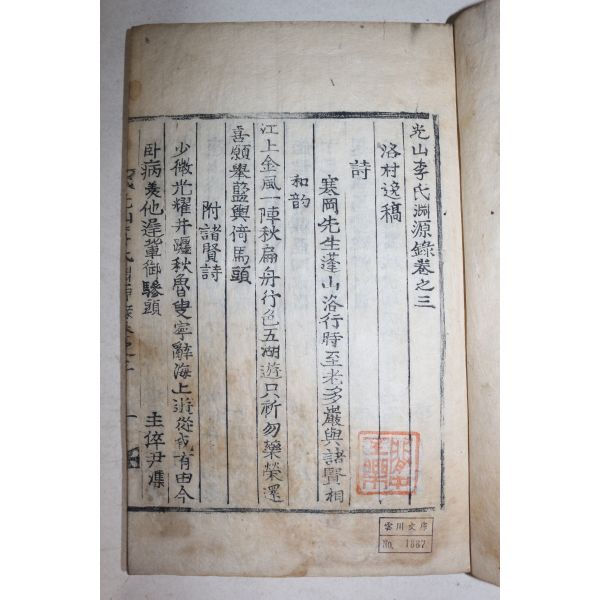 光山李氏淵源錄卷之三
洛村逸稿
詩
寒岡先生蓬山洛行時至老多巖與諸賢相
和韵
江上金風一陣秋扁舟行色五湖遊只祈勿藥榮還
喜願擧藍輿倚馬頭
附諸賢詩
少微光耀井躔秋魯叟寧辭海上遊從我有由今
卧病羨他瀣輩御驂頭 主倅尹
光山李氏淵源錄卷之三 一
雲川文庫
No. 1867